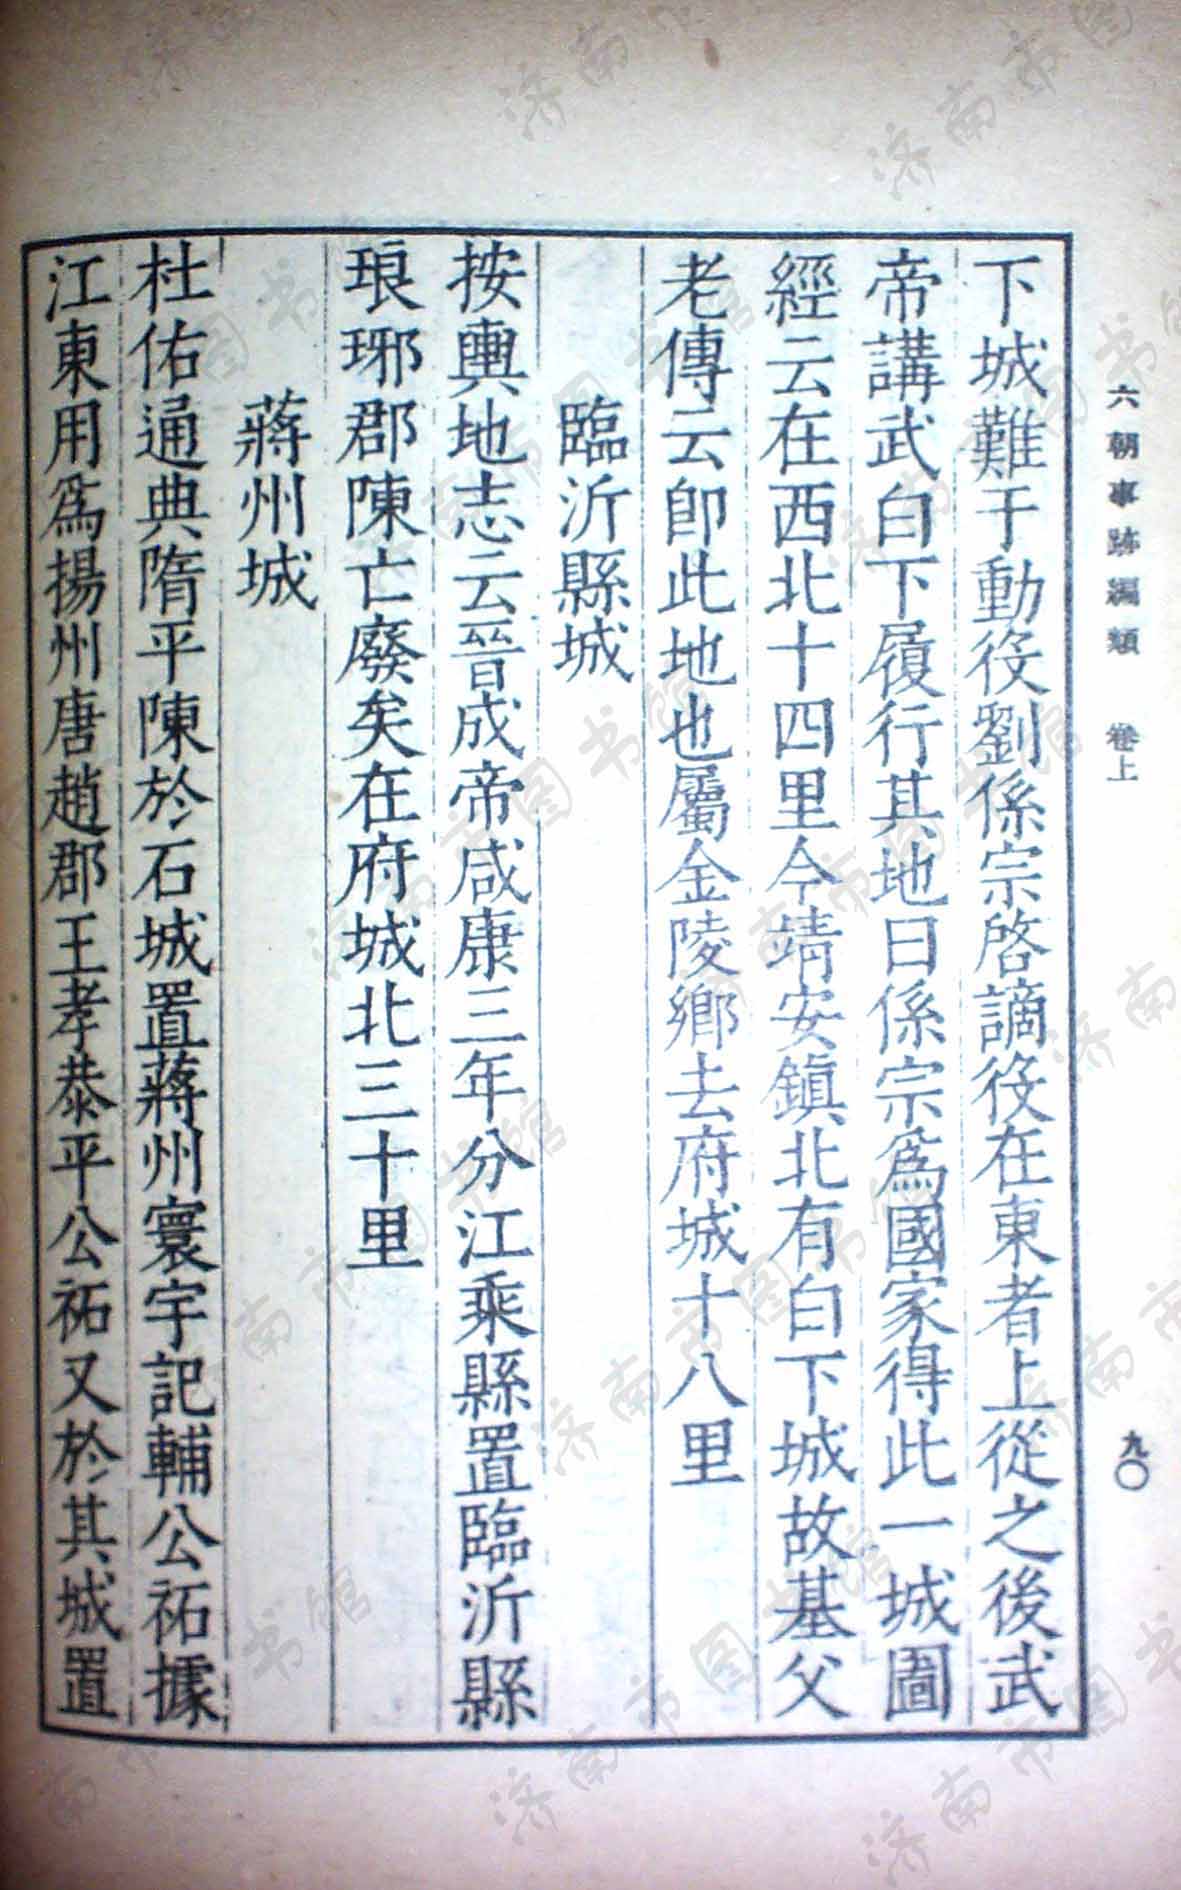 六朝事跡編類 卷上
九〇
下城難于動役劉係宗啓謫役在東者上從之後武
帝講武白下履行其地曰係宗爲國家得此一城圖
經云在西北十四里今靖安鎮北有白下城故基父
老傳云卽此地也屬金陵鄉去府城十八里
臨沂縣城
按輿地志云晉成帝咸康三年分江乘縣置臨沂縣
琅琊郡陳亡廢矣在府城北三十里
蔣州城
杜佑通典隋平陳於石城置蔣州寰宇記輔公祏據
江東用爲揚州唐趙郡王孝恭平公祏又於其城置
济南市图书馆